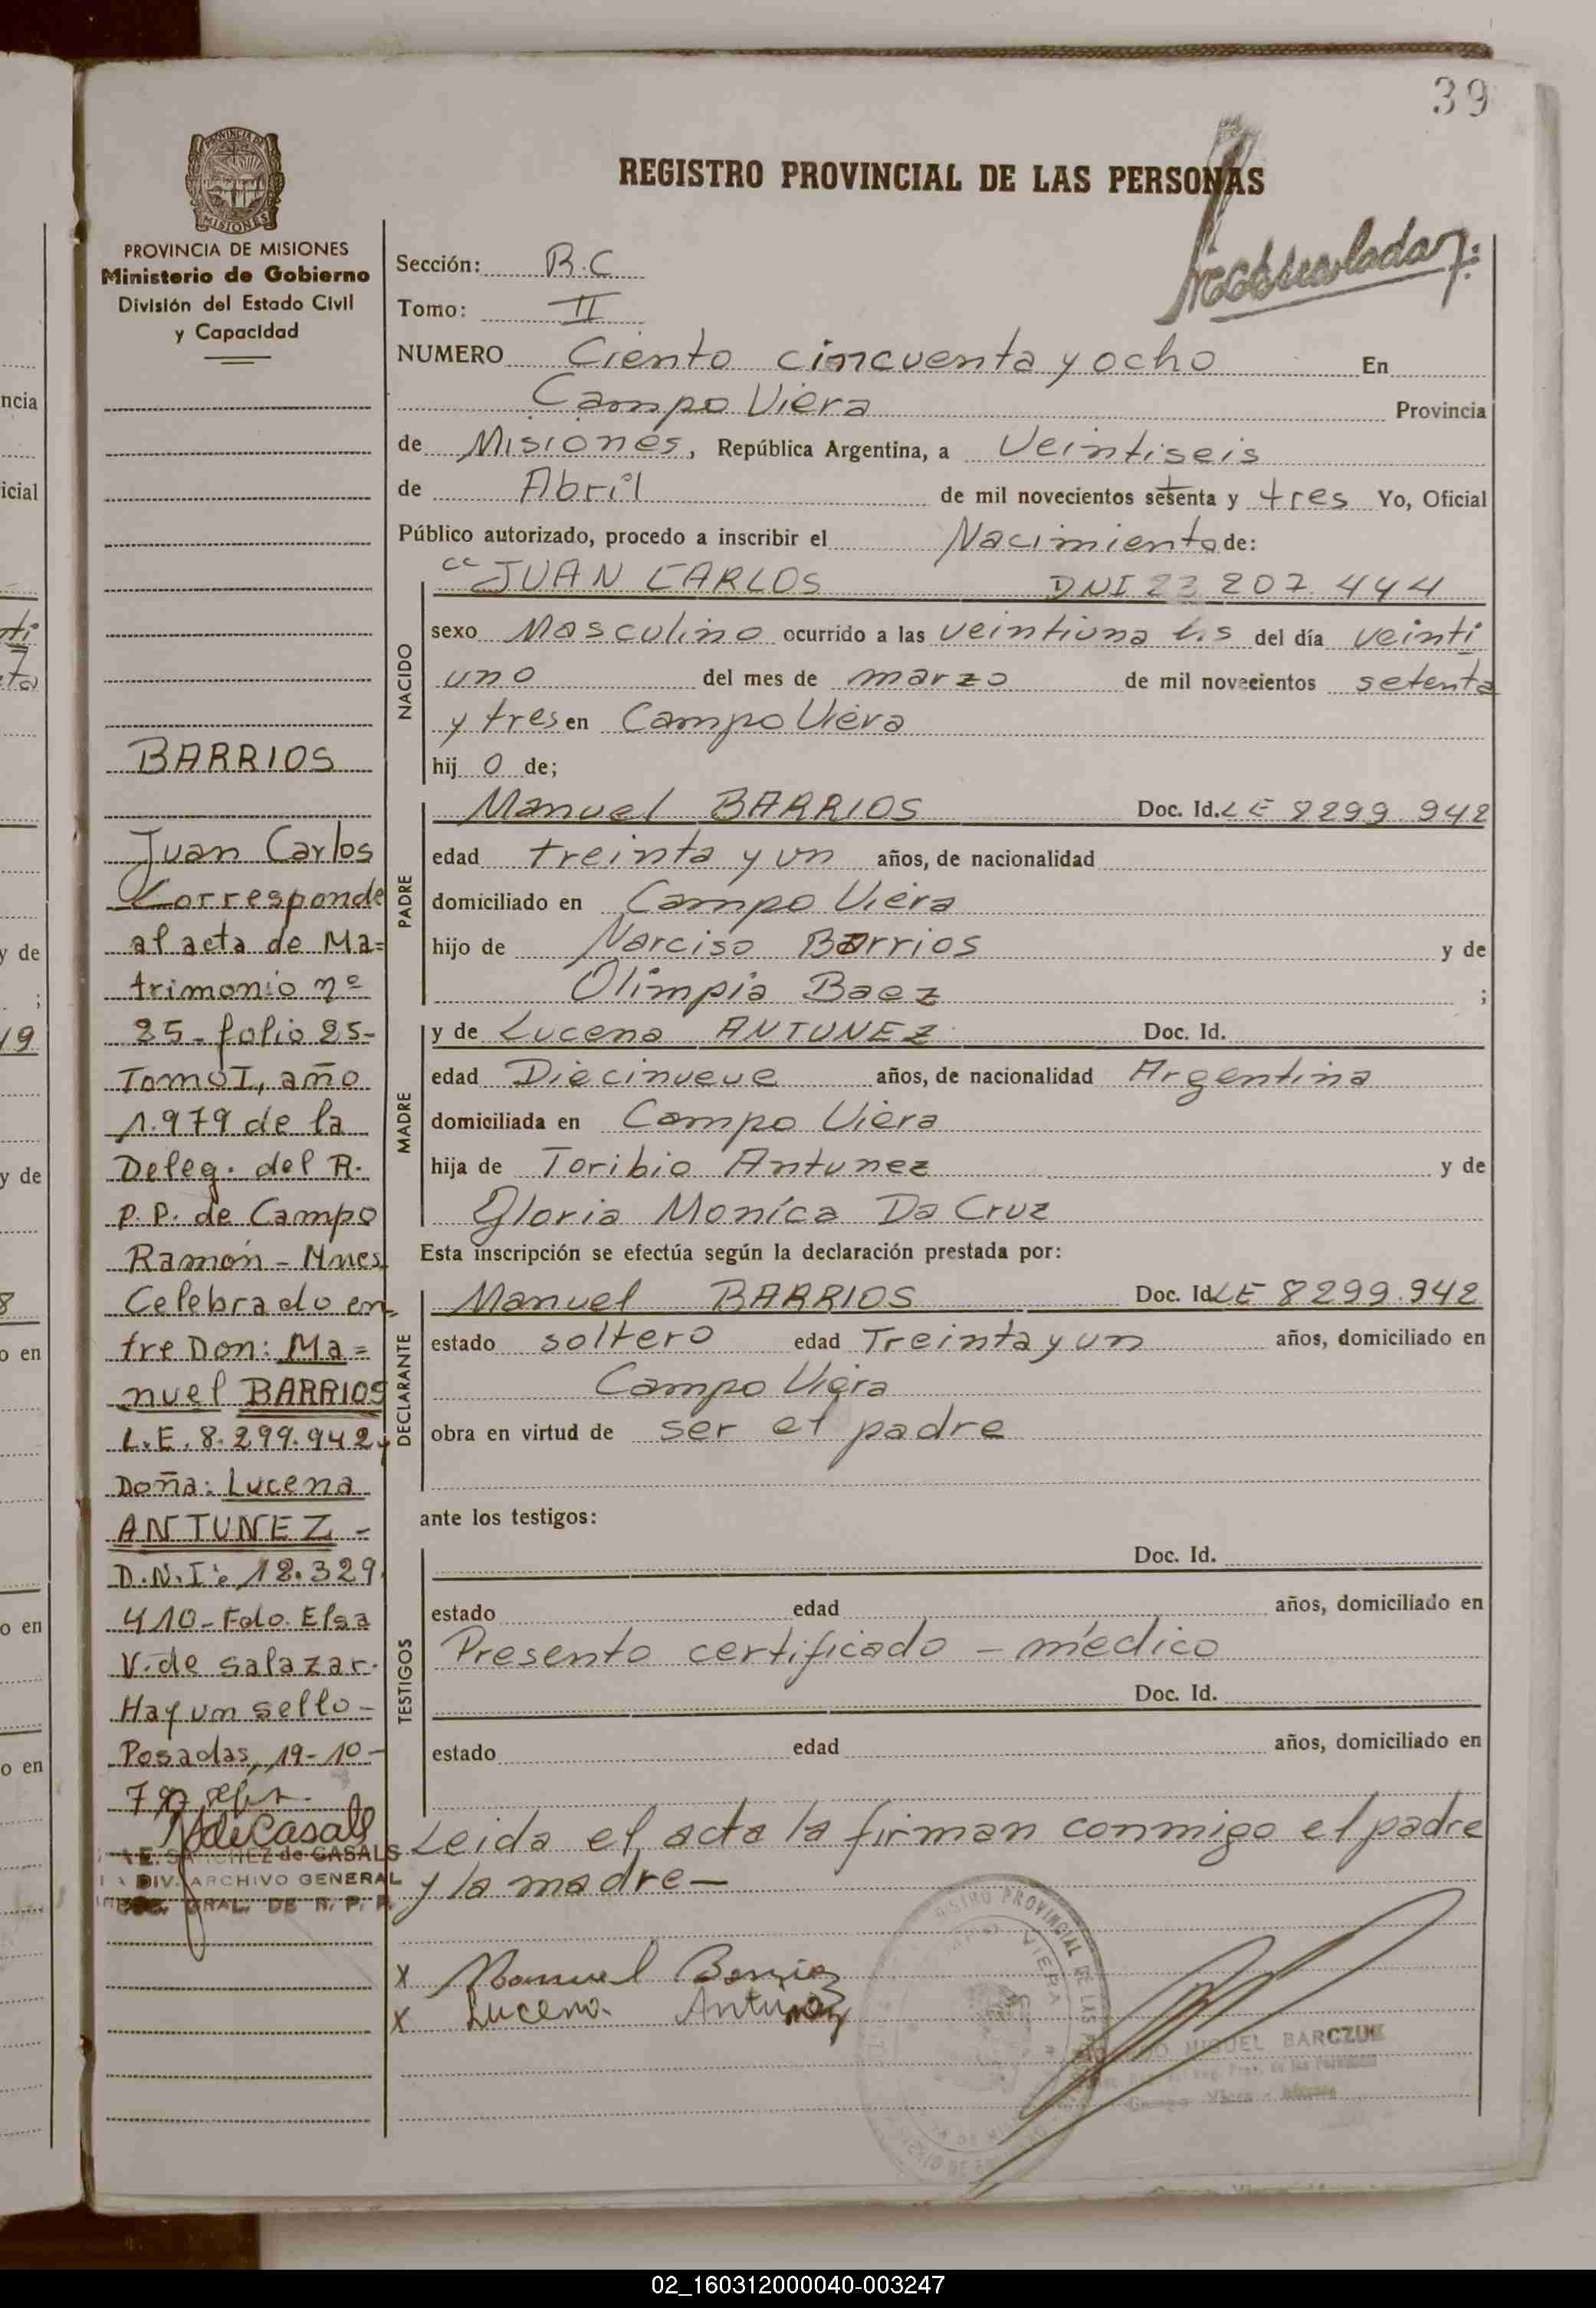 39
PROVINCIA DE
MISIONES
PROVINCIA DE MISIONES
Ministerio de Gobierno
División del Estado Civil
y Capacidad
REGISTRO PROVINCIAL DE LAS PERSONAS
Sección: R.C
Tomo: II
NUMERO Ciento cincuenta y ocho En
Campo Viera Provincia
de Misiones, República Argentina, a Veintiseis
de Abril de mil novecientos setenta y tres Yo, Oficial
Público autorizado, procedo a inscribir el Nacimiento de:
JUAN CARLOS DNI 23 207.444
NACIDO
sexo Masculino ocurrido a las veintiuna hs del día veinti
uno del mes de marzo de mil novecientos setenta
y tres en Campo Viera
hij o de;
PADRE
Manuel BARRIOS Doc. Id. LE 8299.942
edad treinta y un años, de nacionalidad
domiciliado en Campo Viera
hijo de Narciso Barrios y de
Olimpia Baez ;
MADRE
y de Lucena ANTUNEZ Doc. Id.
edad Diecinueve años, de nacionalidad Argentina
domiciliada en Campo Viera
hija de Toribio Antunez y de
Gloria Monica Da Cruz
Esta inscripción se efectúa según la declaración prestada por:
DECLARANTE
Manuel BARRIOS Doc. Id. LE 8299.942
estado soltero edad Treinta y un años, domiciliado en
Campo Viera
obra en virtud de ser el padre
ante los testigos:
TESTIGOS
Doc. Id.
estado edad años, domiciliado en
Presento certificado - médico
Doc. Id.
estado edad años, domiciliado en
Leida el acta la firman conmigo el padre
y la madre -
x Manuel Barrios
x Lucena Antunez
MIGUEL BARCZUK
BARRIOS
Juan Carlos
Corresponde
al acta de Ma=
trimonio nº
25 - folio 25-
Tomo I, año
1.979 de la
Deleg. del R.
P.P. de Campo
Ramón - Mnes
Celebrado en=
tre Don: Ma=
nuel BARRIOS
L.E. 8.299.942 y
Doña: Lucena
ANTUNEZ -
D.N.I: 18.329.
410 - Fdo. Elsa
V. de Salazar.
Hay un sello -
Posadas, 19-10-
E. SANCHEZ de CASALS
DIV. ARCHIVO GENERAL
GRAL. DE R. P. P.
ncia
icial
y de
;
19
y de
8
o en
o en
o en
02_160312000040-003247